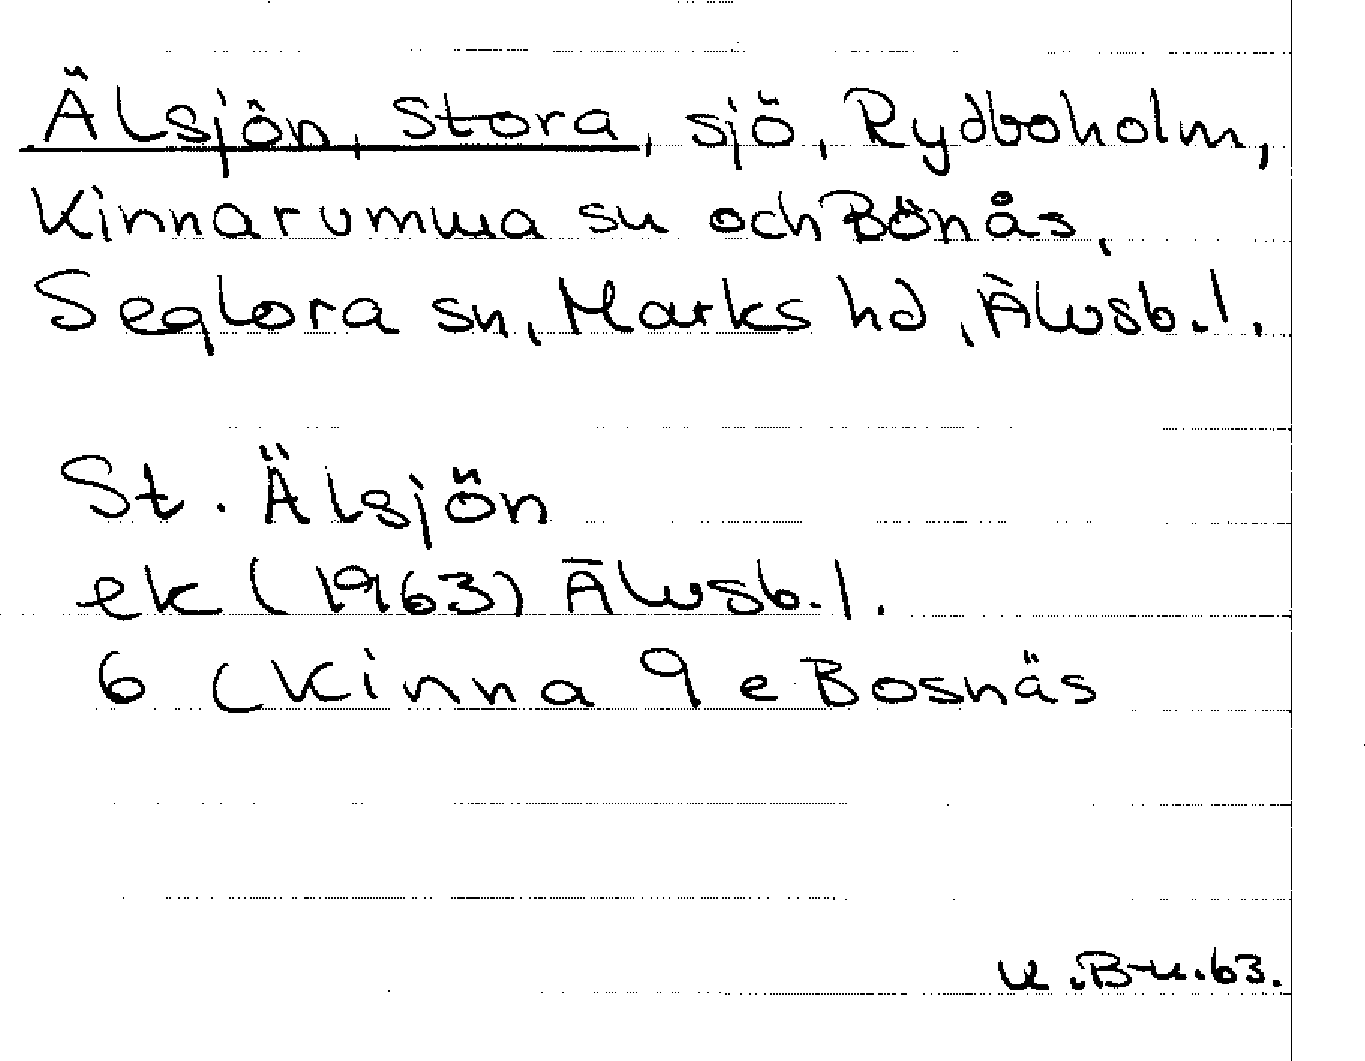 Älsjön, Stora, sjö, Rydboholm,
Kinnarumma sn och Bönås,
Seglora sn, Marks hd, Älvsb. l.
St. Älsjön
ek (1963) Älvsb. l.
6 (Kinna 9 e Bosnäs
K.B-n.63.